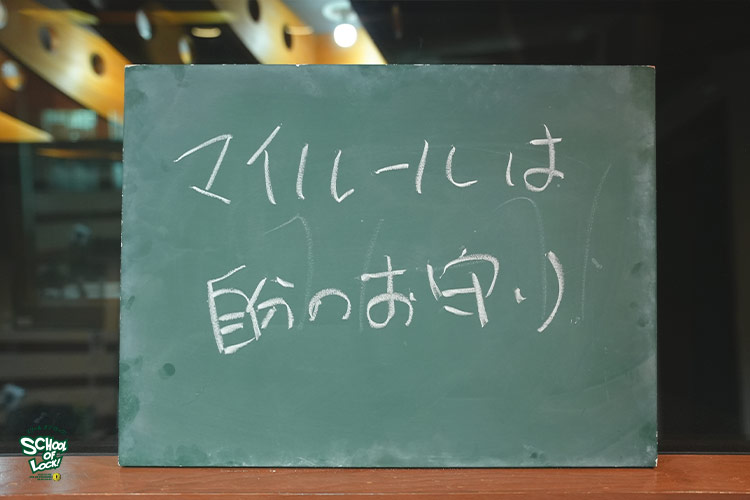 マイルールは
自分のお守り
SCHOOL
OF
LOCK!